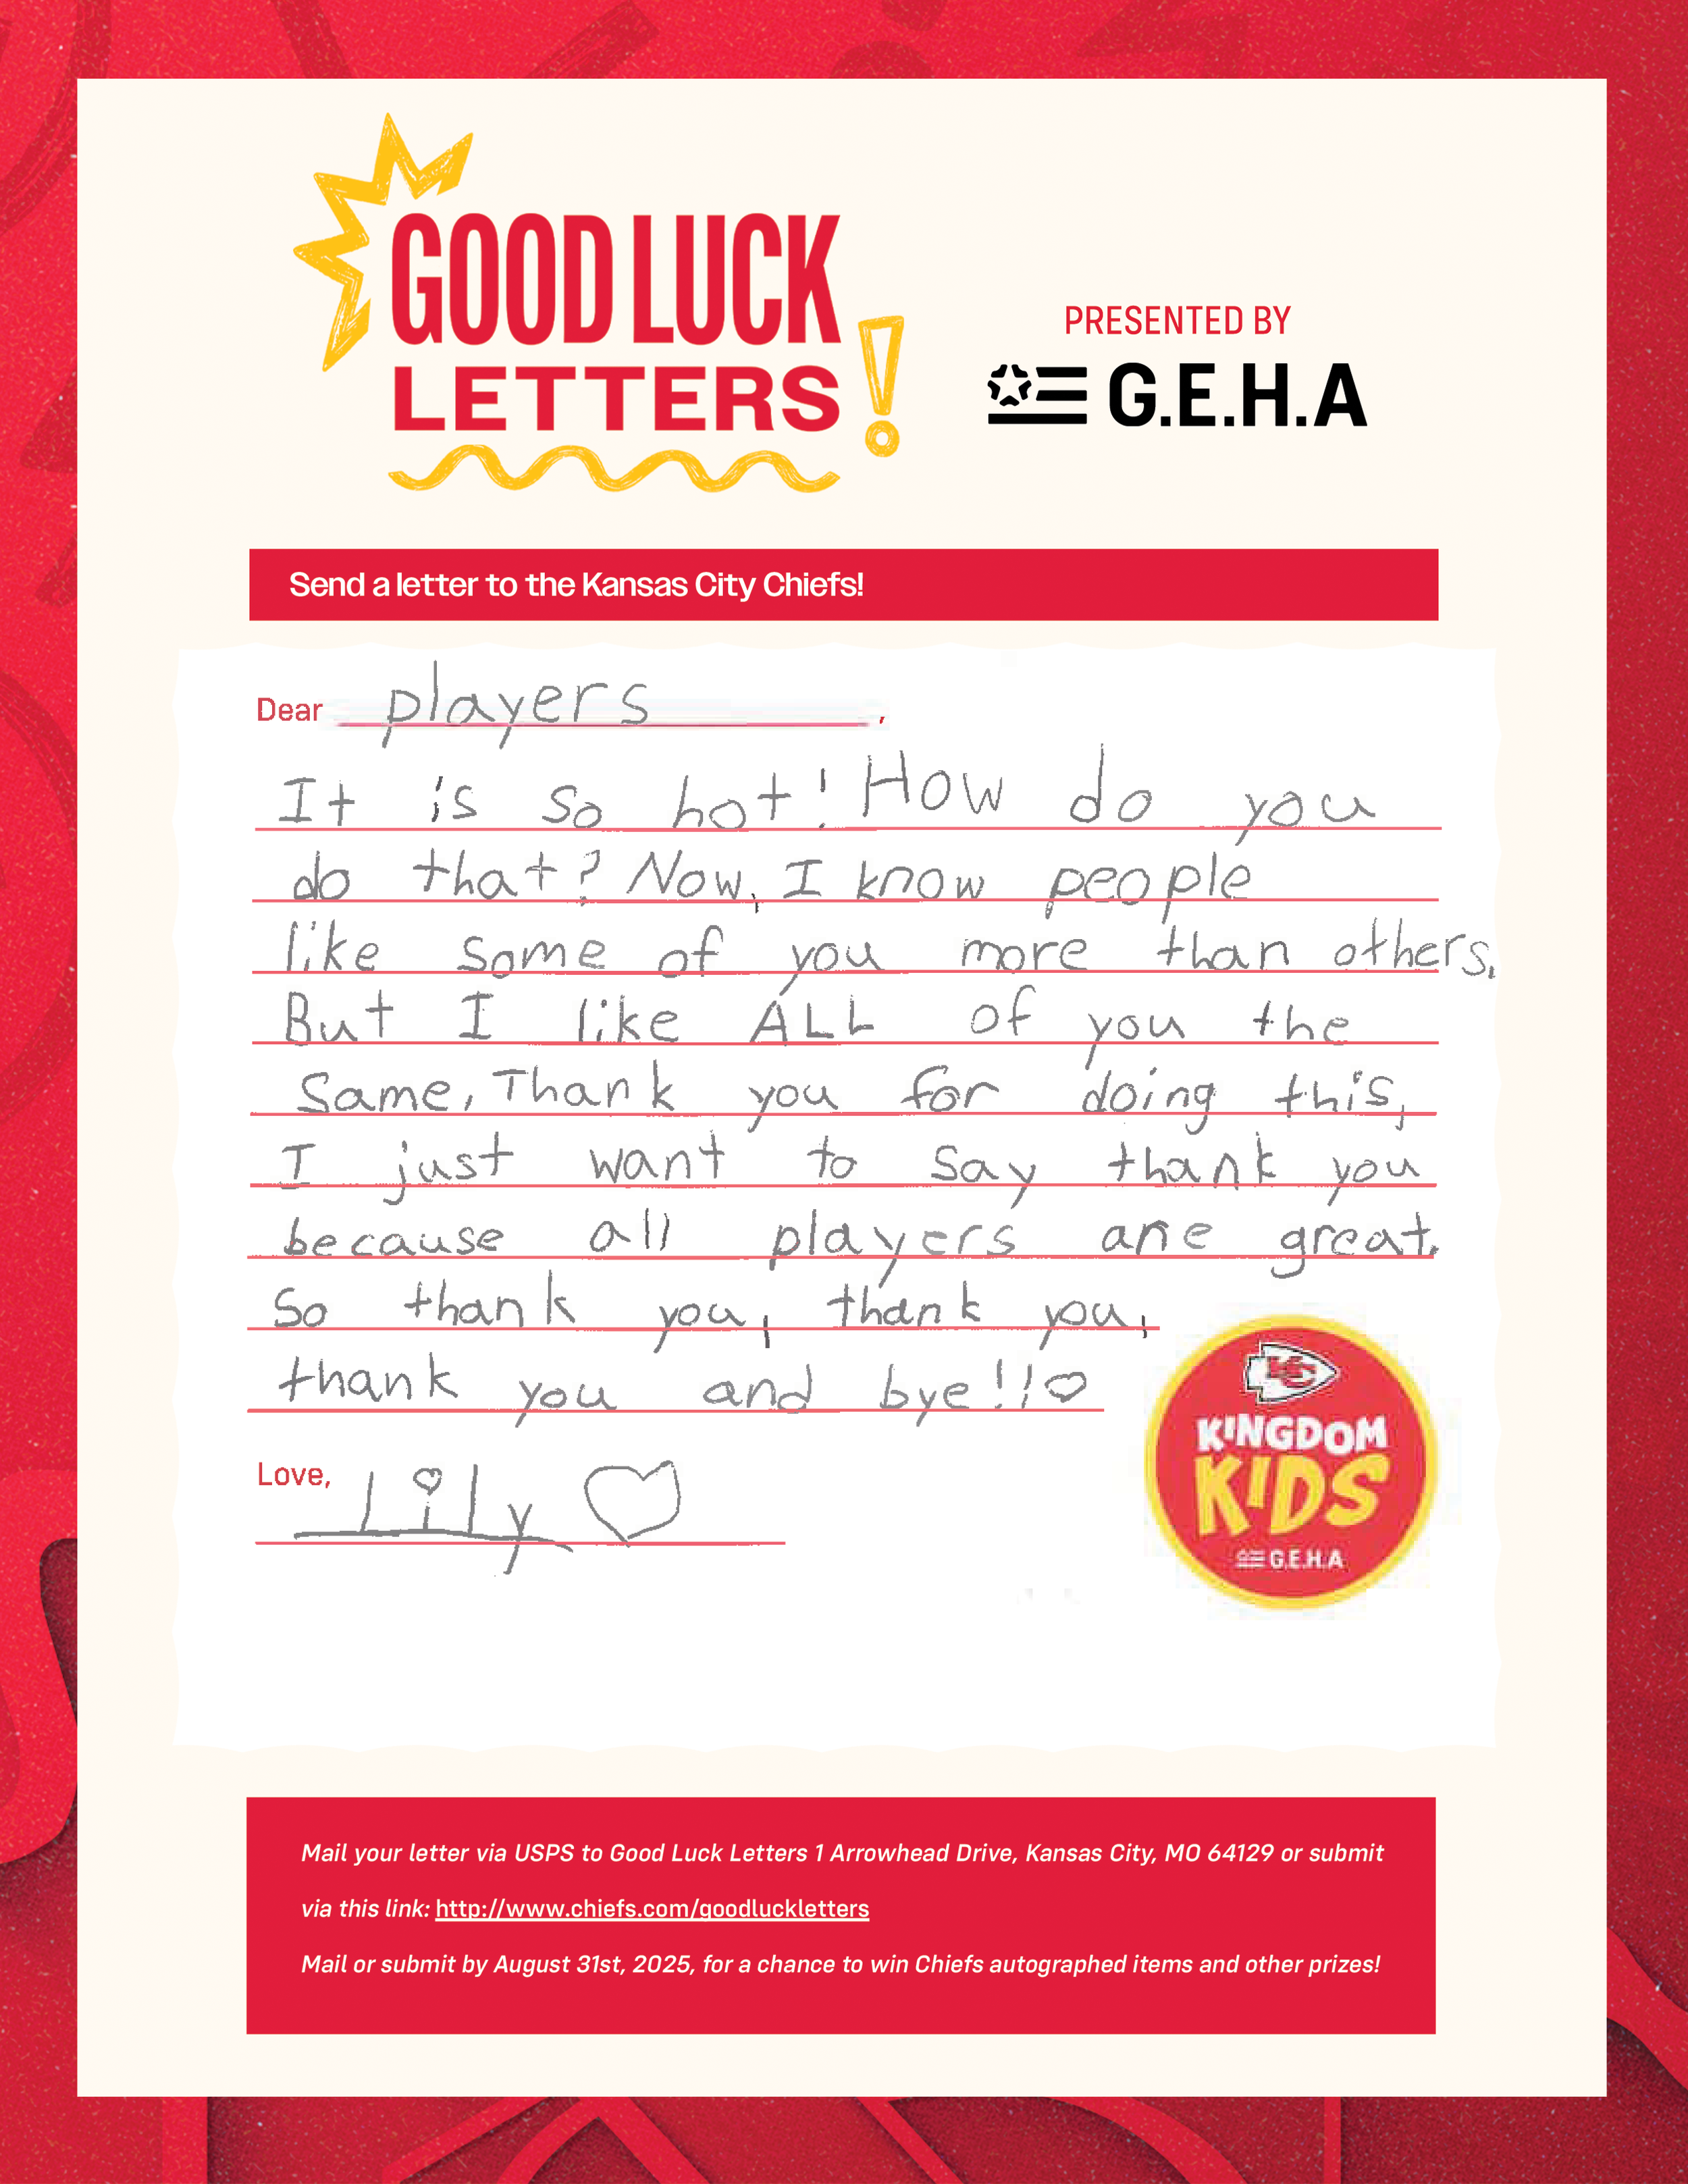 GOOD LUCK
LETTERS!
PRESENTED BY
G.E.H.A
Send a letter to the Kansas City Chiefs!
Dear players,
It is so hot! How do you
do that? Now, I know people
like some of you more than others.
But I like ALL of you the
Same, Thank you for doing this,
I just want to say thank you
because all players are great.
So thank you, thank you,
thank you and bye!!♡
Love, Lily ♡
KC
KINGDOM
KIDS
G.E.H.A
Mail your letter via USPS to Good Luck Letters 1 Arrowhead Drive, Kansas City, MO 64129 or submit
via this link: http://www.chiefs.com/goodluckletters
Mail or submit by August 31st, 2025, for a chance to win Chiefs autographed items and other prizes!